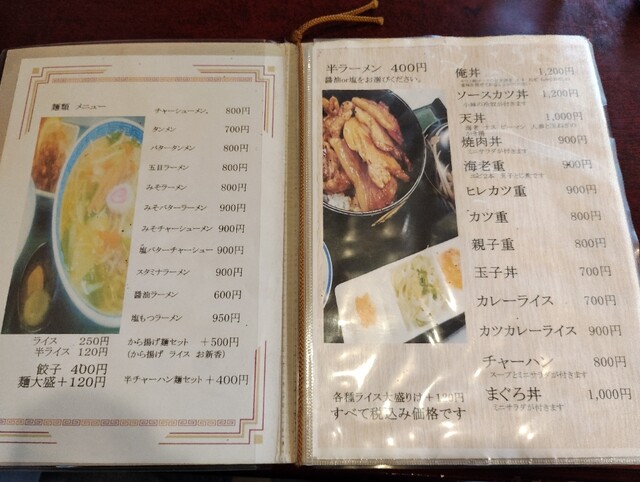 麺類 メニュー
チャーシューメン 800円
タンメン 700円
バタータンメン 800円
五目ラーメン 800円
みそラーメン 800円
みそバターラーメン 900円
みそチャーシューメン 900円
塩バターチャーシュー 900円
スタミナラーメン 900円
醤油ラーメン 600円
塩もつラーメン 950円
ライス 250円
半ライス 120円
餃子 400円
麺大盛+120円
から揚げ麺セット +500円
(から揚げ ライス お新香)
半チャーハン麺セット+400円
半ラーメン 400円
醤油or塩をお選びください。
俺丼 1,200円
ソースカツ丼 1,200円
小鉢の用意が付きます
天丼 1,000円
焼肉丼 900円
ミニサラダが付きます
海老重 900円
ヒレカツ重 900円
カツ重 800円
親子重 800円
玉子丼 700円
カレーライス 700円
カツカレーライス 900円
チャーハン 800円
スープとミニサラダが付きます
まぐろ丼 1,000円
ミニサラダが付きます
各種ライス大盛りは+120円
すべて税込み価格です